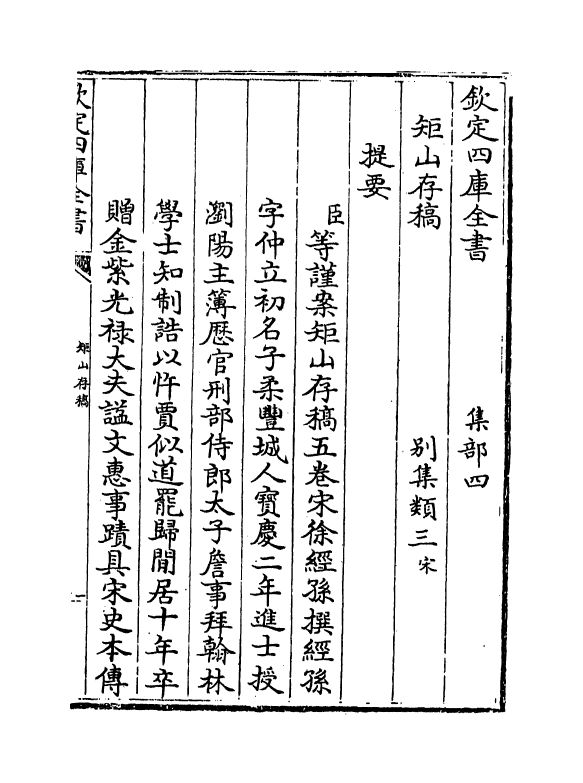 欽定四庫全書　集部四
矩山存稿　別集類三宋
提要
臣等謹案矩山存稿五卷宋徐經孫撰經孫
字仲立初名子柔豐城人寶慶二年進士授
瀏陽主簿歴官刑部侍郎太子詹事拜翰林
學士知制誥以忤賈似道罷歸閒居十年卒
贈金紫光祿大夫諡文惠事蹟具宋史本傳
欽定四庫全書
矩山存稿
一